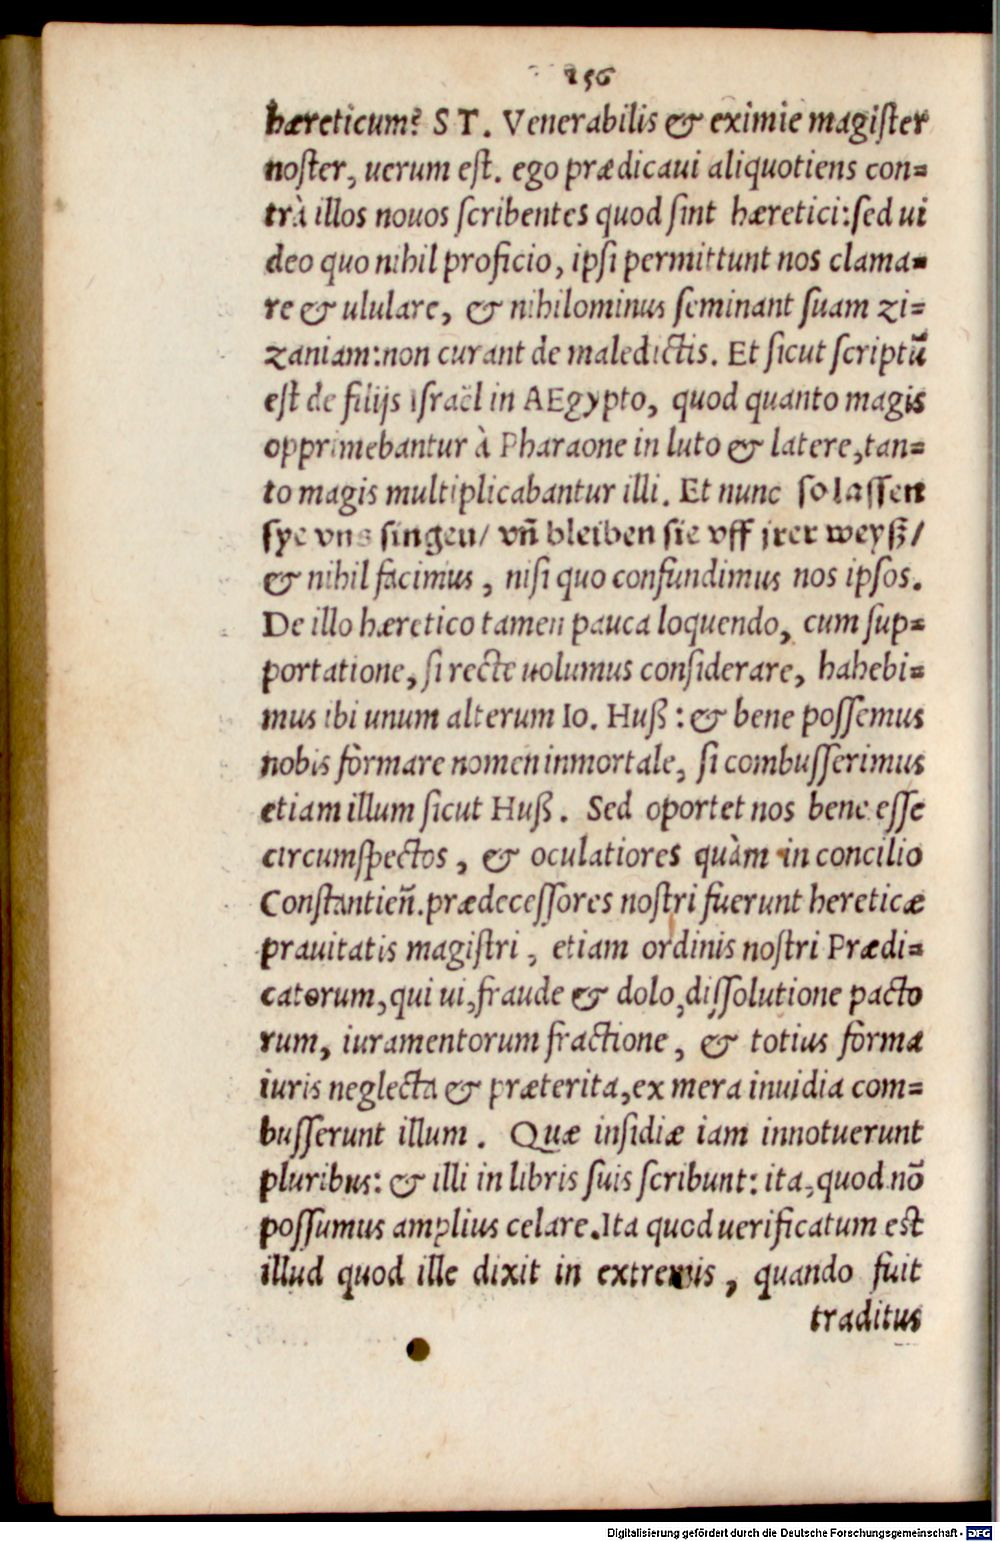 156
hæreticum? ST. Venerabilis & eximie magiſter
noſter, uerum eſt. ego prædicaui aliquotiens con=
trà illos nouos ſcribentes quod ſint hæretici: ſed ui
deo quo nihil proficio, ipſi permittunt nos clama=
re & ululare, & nihilominus ſeminant ſuam zi=
zaniam: non curant de maledictis. Et ſicut ſcriptū
eſt de filijs Iſraël in AEgypto, quod quanto magis
opprimebantur à Pharaone in luto & latere, tan=
to magis multiplicabantur illi. Et nunc ſo laſſen
ſye vns ſingen/ vn̄ bleiben ſie vff jrer weyß/
& nihil facimus, niſi quo confundimus nos ipſos.
De illo hæretico tamen pauca loquendo, cum ſup=
portatione, ſi recte uolumus conſiderare, hahebi=
mus ibi unum alterum Io. Huß: & bene poſſemus
nobis formare nomen inmortale, ſi combuſſerimus
etiam illum ſicut Huß. Sed oportet nos bene eſſe
circumſpectos, & oculatiores quàm in concilio
Conſtantien̄. prædeceſſores noſtri fuerunt hereticæ
prauitatis magiſtri, etiam ordinis noſtri Prædi=
catorum, qui ui, fraude & dolo, diſſolutione pacto
rum, iuramentorum fractione, & totius forma
iuris neglecta & præterita, ex mera inuidia com=
buſſerunt illum. Quæ inſidiæ iam innotuerunt
pluribus: & illi in libris ſuis ſcribunt: ita, quod nō
poſſumus amplius celare. Ita quod uerificatum eſt
illud quod ille dixit in extremis, quando fuit
traditus
Digitalisierung gefördert durch die Deutsche Forschungsgemeinschaft - DFG